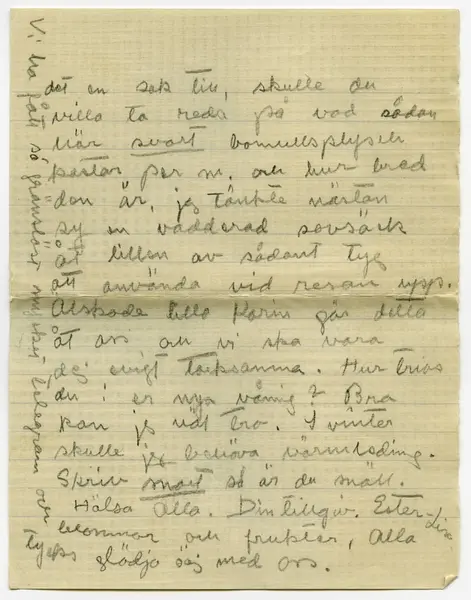 det en sak till, skulle du
villa ta reda på vad sådan
här svart bomullsplysch
kostar per m. och hur bred
den är, jag tänkte nästan
sy en vadderad sovsäck
åt lillen av sådant tyg
att använda vid resan upp.
Älskade lilla Karin gör detta
åt oss du vi ska vara
dej evigt tacksamma. Hur trivs
du i er nya våning? Bra
kan jag väl tro. I vinter
skulle jag behöva värmledning.
Skriv snart så är du snäll.
Hälsa Alla. Din tillgiv. Ester-Lisa
Vi ha fått så gränslöst mycket telegram och
blommor och frukter, Alla
tycks glädja sej med oss.